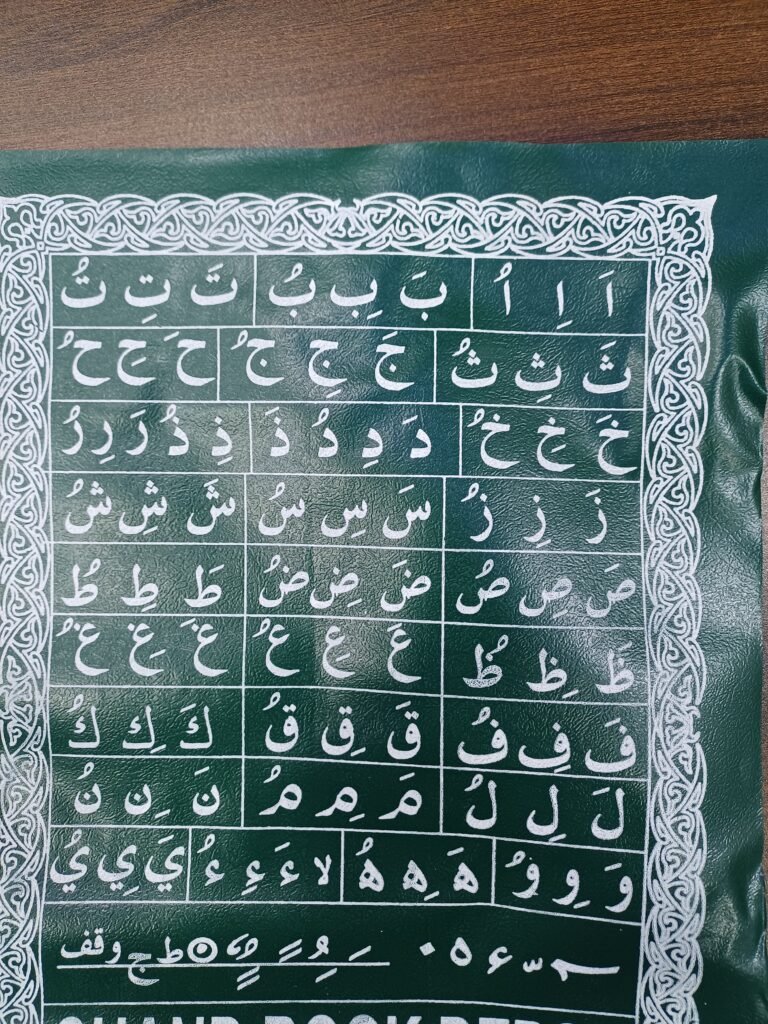 اَ اِ اُ بَ بِ بُ تَ تِ تُ
ثَ ثِ ثُ جَ جِ جُ حَ حِ حُ
خَ خِ خُ دَ دِ دُ ذَ ذِ ذُ رَ رِ رُ
زَ زِ زُ سَ سِ سُ شَ شِ شُ
صَ صِ صُ ضَ ضِ ضُ طَ طِ طُ
ظَ ظِ ظُ عَ عِ عُ غَ غِ غُ
فَ فِ فُ قَ قِ قُ كَ كِ كُ
لَ لِ لُ مَ مِ مُ نَ نِ نُ
وَ وِ وُ هَ هِ هُ لا ءَ ءِ ءُ يَ يِ يُ
ط ج وقف